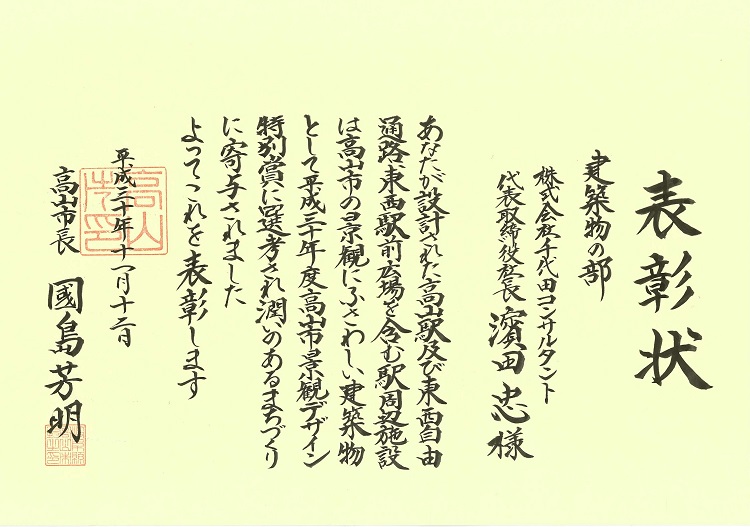 表彰状
建築物の部
株式会社千代田コンサルタント
代表取締役社長 濵田忠様
あなたが設計された高山駅及び東西自由
通路、東西駅前広場を含む駅周辺施設
は高山市の景観にふさわしい建築物
として平成三十年度高山市景観デザイン
特別賞に選考され潤いのあるまちづくり
に寄与されました
よってこれを表彰します
平成三十年十一月十二日
高山市長 國島芳明
高山市印